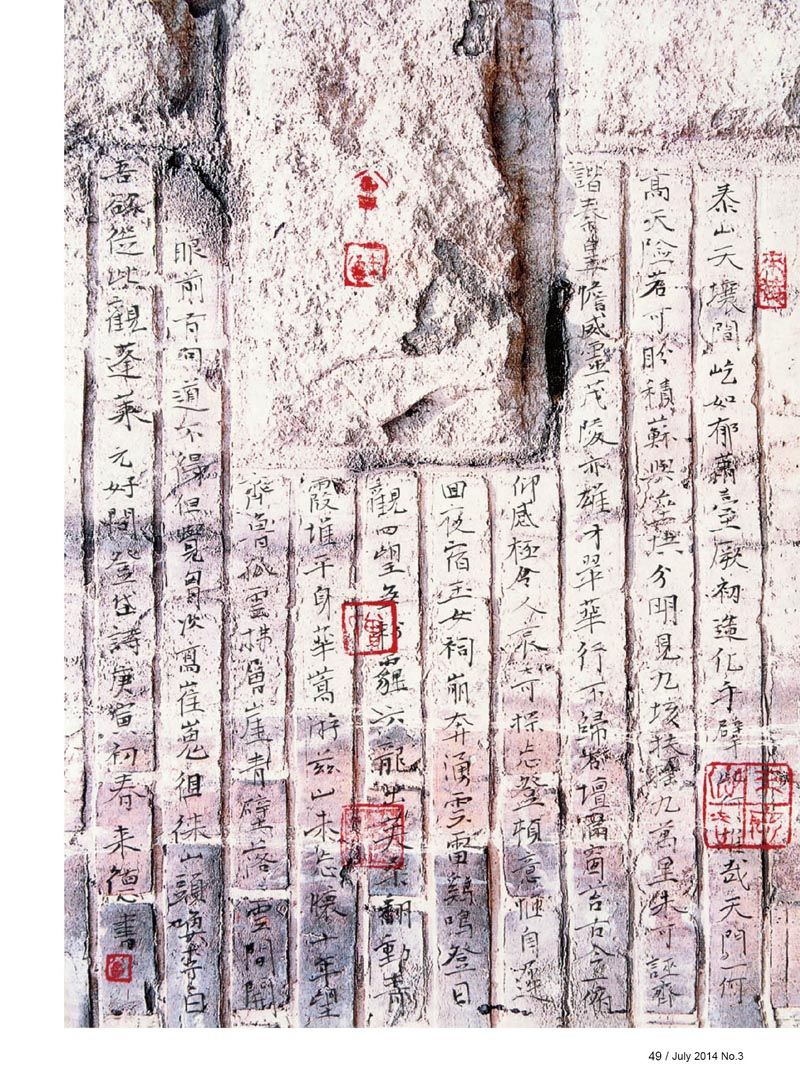 泰山天壤間屹如郁蕭臺厥初造化手劈哉天門一何
高天險若可盼積蘇與分明見九垓扶搖九萬里朱可誣齊
諧秦皇憺威靈茂陵亦雄才翠華行不歸壇古今俯
仰感極令人哀奇探忘登頓意愜自遲
回夜宿玉女祠崩奔湧雲雷鷄鳴登日
觀四望霾六龍出翻動青
霞堆平身華嵩游茲山未忘懷十年望
齊魯孤雲拂層崖青壁落雲間開
眼前有句道不得但覺胸次高崔嵬徂徠山頭喚李白
吾欲從此觀蓬萊 元好問登岱詩庚寅初春 未德書
49 / July 2014 No.3